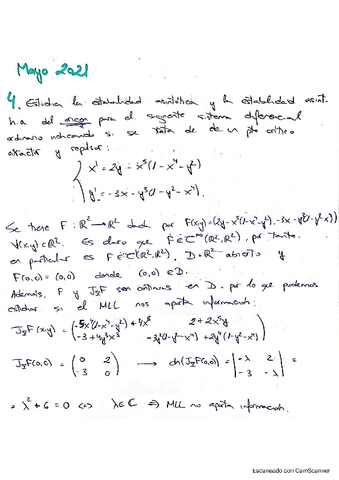 Mayo 2021
4. Estudia la estabilidad asintótica y la estabilidad asint.
h.a. del origen para el siguiente sistema diferencial
ordinario indicando si se trata de de un pto crítico
atractor y repulsor:
x' = 2y - x⁵(1 - x⁴ - y²)
y' = -3x - y³(1 - y² - x⁴).
Se tiene F: ℝ² → ℝ² dada por F(x,y) = (2y - x⁵(1-x⁴-y²), -3x - y³(1-y²-x⁴))
∀(x,y) ∈ ℝ². Es claro que F ∈ C^∞(ℝ², ℝ²), por tanto,
en particular es F ∈ C¹(ℝ², ℝ²). D = ℝ² abierto y
F(0,0) = (0,0) donde (0,0) ∈ D.
Además, F y J_F son continuas en D. por lo que podemos
estudiar si el MLL nos aporta información:
-5x⁴(1-x⁴-y²) + 4x⁸ 2 + 2x⁵y
J_F(x,y) =
-3 + 4y³x³ -3y²(1-y²-x⁴) + 2y⁴
J_F(0,0) = (0 2 → ch(J_F(0,0)) = |-λ 2 | =
-3 0) |-3 -λ|
= λ² + 6 = 0 ⇔ λ ∈ ℂ ⇒ MLL no aporta información.
Escaneado con CamScanner